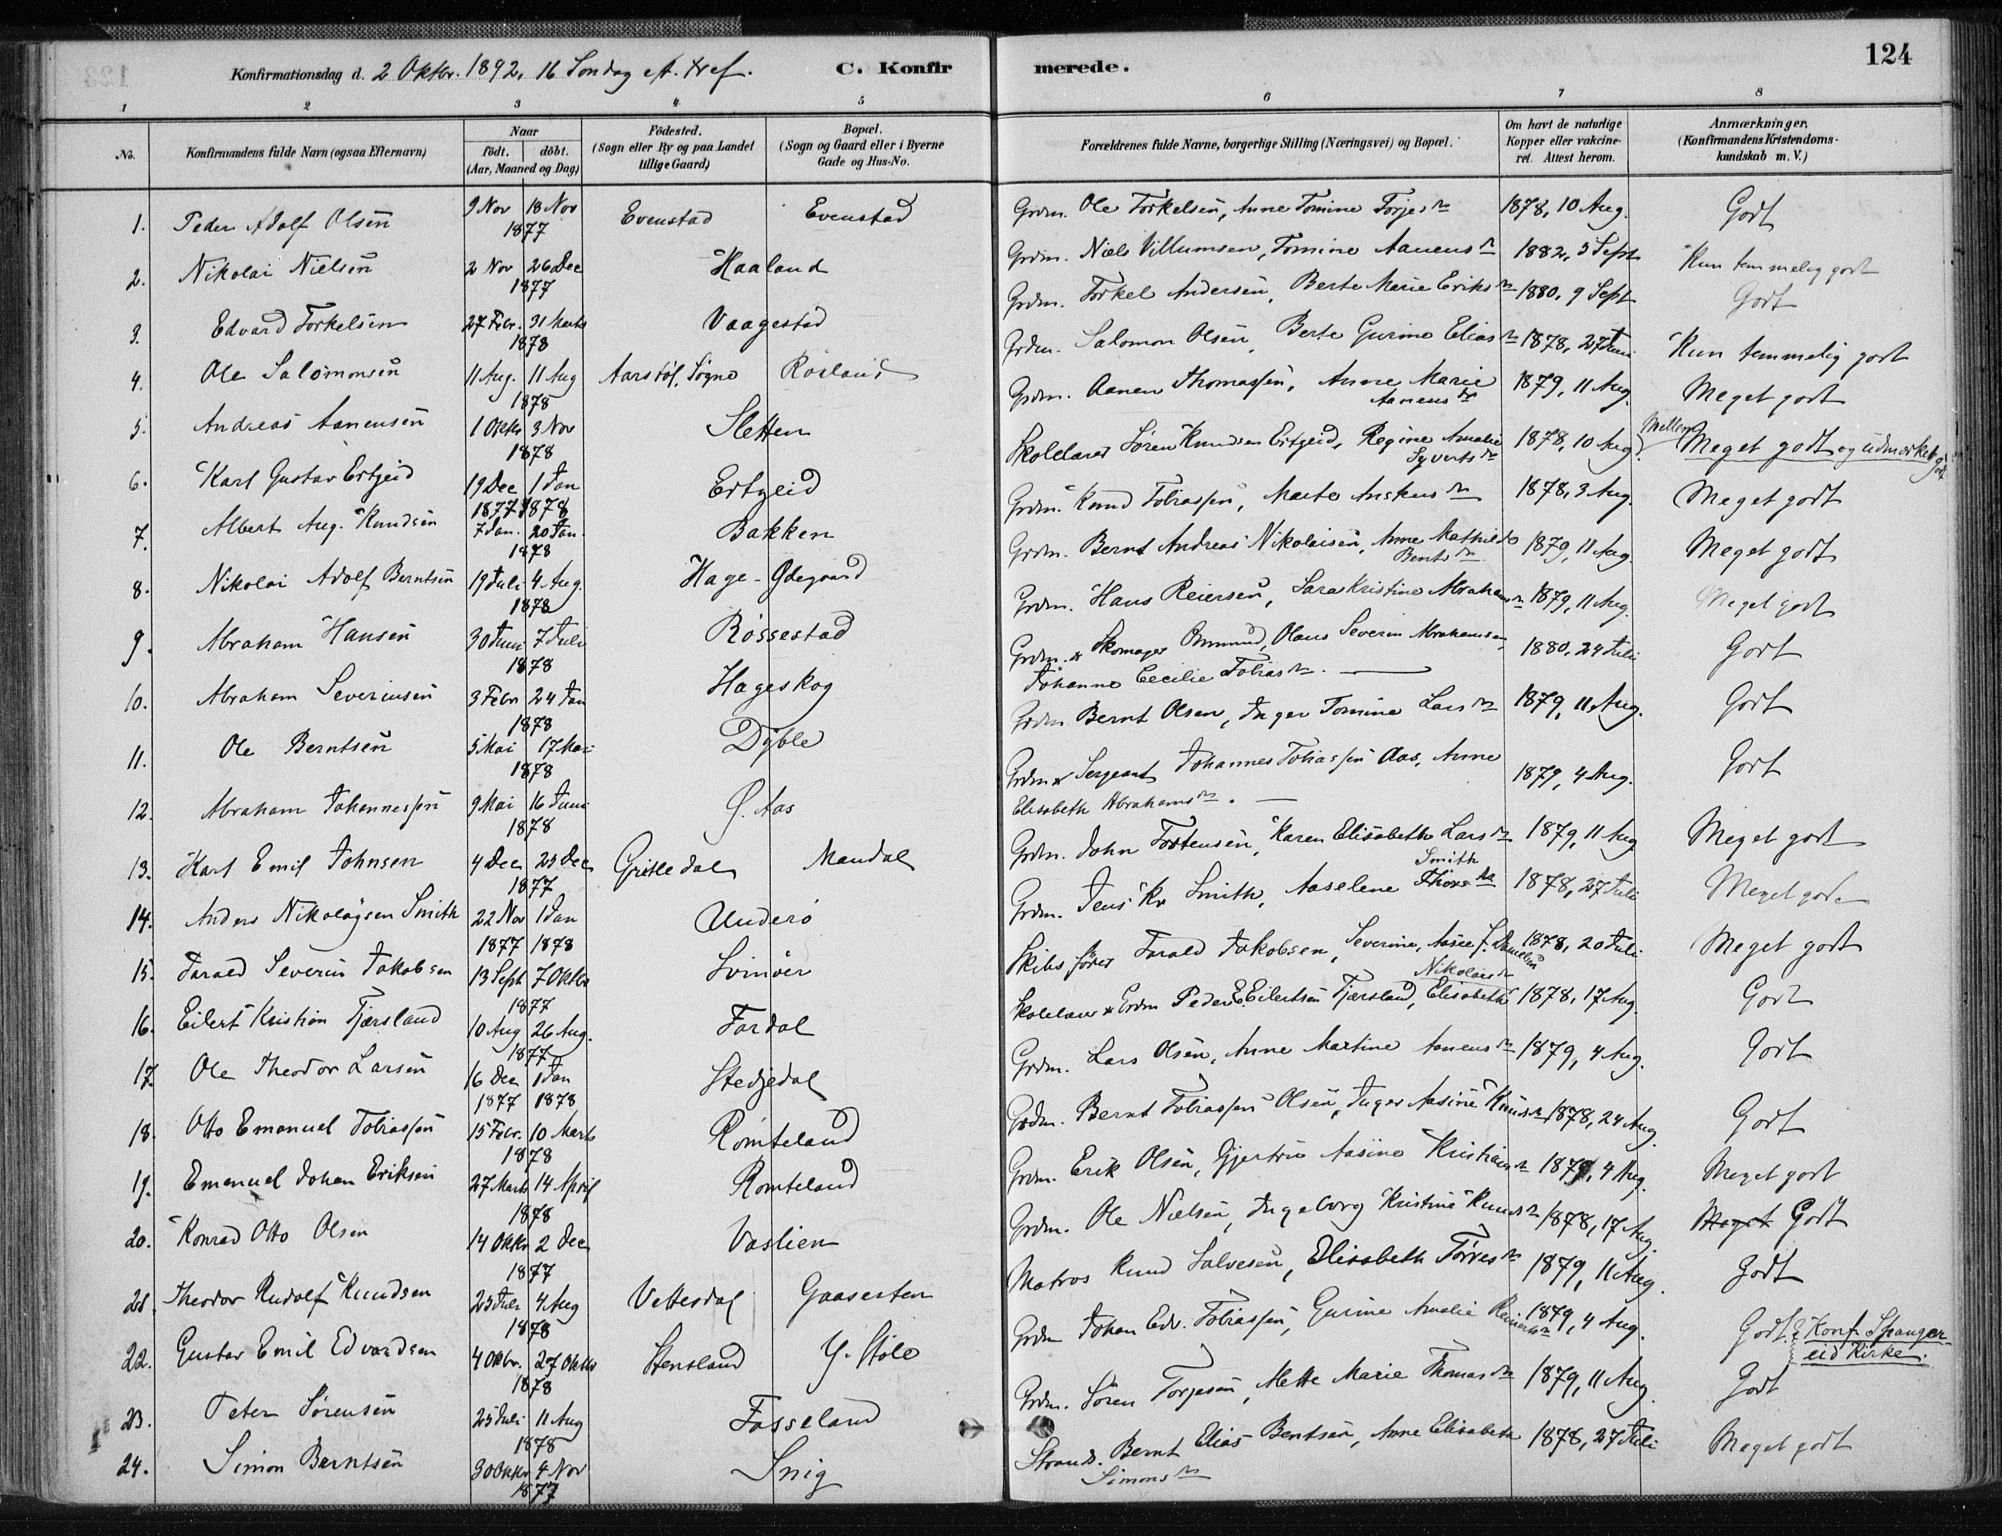 124
Konfirmationsdag d. 2 Oktbr. 1892, 16 Søndag eft. tref. C. Konfirmerede.
1 2 3 4 5 6 7 8
No. Konfirmandens fulde Navn (ogsaa Efternavn) Naar født. døbt. (Aar, Maaned og Dag) Fødested. (Sogn eller By og paa Landet tillige Gaard) Bopæl. (Sogn og Gaard eller i Byerne Gade og Hus-No. Forældrenes fulde Navne, borgerlige Stilling (Næringsvei) og Bopæl. Om havt de naturlige Kopper eller vakcineret. Attest herom. Anmærkninger. (Konfirmandens Kristendomskundskab m. V.)
1. Peder Adolf Olsen 9 Nov 18 Nov 1877 Evenstad Evenstad Grdm. Ole Torkelsen, Anne Tomine Torjesdr 1878, 10 Aug. Godt
2. Nikolai Nielsen 2 Nov 26 Dec 1877 Haaland Grdm. Niels Villumsen, Tomine Aanensdr 1882, 5 Sept Kun temmelig godt
3. Edvard Torkelsen 27 Febr. 31 Marts 1878 Vaagestad Grdm. Torkel Andersen, Berte Marie Eriksdr 1880, 9 Sept Godt
4. Ole Salomonsen 11 Aug. 11 Aug 1878 Aarstøl, Søgne Røsland Grdm. Salomon Olsen, Berte Gurine Eliasdr 1878, 27 Juni Kun temmelig godt
5. Andreas Aanensen 1 Oktbr 3 Nov 1878 Sletten Grdm. Aanen Thomassen, Anne Marie Aanensdr 1879, 11 Aug. Meget godt
6. Karl Gustav Ertzeid 19 Dec 1 Jan 1877 1878 Ertzeid Skolelærer Søren Knudsen Ertzeid, Regine Amalie Syvertsdr 1878, 10 Aug. Mellem Meget godt og udmærket godt
7. Albert Aug. Knudsen 7 Jan. 20 Jan. 1878 Bakken Grdm. Knud Tobiassen, Marte Anskersdr 1878, 3 Aug. Meget godt
8. Nikolai Adolf Berntsen 19 Juli 4 Aug. 1878 Hage-Ødegaard Grdm. Bernt Andreas Nikolaisen, Anne Mathilde Bentsdr 1879, 11 Aug. Meget godt
9. Abraham Hansen 30 Juni 7 Juli 1878 Røssestad Grdm. Hans Reiersen, Sara Kristine Abrahamsdr 1879, 11 Aug. Meget godt
10. Abraham Severinsen 3 Febr 24 Jan 1878 Hageskog Grdm. & Skomager Omund Olaus Severin Abrahamsen, Johanne Cecilie Tobiasdr. 1880, 24 Juli Godt
11. Ole Berntsen 5 Mai 17 Mai 1878 Dyble Grdm Bernt Olsen, Inger Tomine Larsdr 1879, 11 Aug. Godt
12. Abraham Johannessen 9 Mai 16 Juni 1878 Ø. Aas Grdm & Sergeant Johannes Tobiassen Aas, Anne Elisabeth Abrahamsdr. 1879, 4 Aug. Godt
13. Karl Emil Johnsen 4 Dec 25 Dec 1877 Gritledal Mandal Grdm. John Tostensen, Karen Elisabeth Larsdr 1879, 11 Aug Meget godt
14. Anders Nikolaysen Smith 22 Nov 1 Jan 1877 1878 Underø Grdm. Jens Kr Smith, Aaselene Thorsdr Smith 1878, 27 Juli Meget godt
15. Tarald Severin Jakobsen 13 Sept 7 Oktbr 1877 Svinøer Skibsfører Tarald Jakobsen, Severine, Aasee f. Danielsen 1878, 20 Juli Meget godt
16. Eilert Kristian Tjærsland 10 Aug 26 Aug. 1877 Fardal Skolelærer & Grdm Peder E. Eilertsen Tjærsland, Elisabeth Nikolaisdr 1878, 17 Aug. Godt
17. Ole Theodor Larsen 16 Dec 1 Jan 1877 1878 Stedjedal Grdm. Lars Olsen, Anne Martine Aanensdr 1879, 4 Aug. Godt
18. Otto Emanuel Tobiassen 15 Febr. 10 Marts 1878 Rømteland Grdm. Bernt Tobiassen Olsen, Inger Aasine Knutsdr 1878, 24 Aug. Godt
19. Emanuel Johan Eriksen 27 Marts 14 April 1878 Rømteland Grdm. Erik Olsen, Gjertrud Aasine Kristiansdr 1879, 4 Aug. Meget godt
20. Konrad Otto Olsen 14 Oktbr 2 Dec 1877 Vaslien Grdm. Ole Nielsen, Ingeborg Kristine Knudsdr 1878, 17 Aug. Meget Godt
21. Theodor Rudolf Knudsen 25 Juli 4 Aug 1878 Vettesdal Gaaserten Matros Knud Salvesen, Elisabeth Tørresdr 1879, 11 Aug. Godt
22. Gustav Emil Edvardsen 4 Oktbr. 27 Oktbr 1878 Stensland Y. Støle Grdm Johan Edv. Tobiassen, Gurine Amalie Reiertsdr 1879, 4 Aug. Godt. Konf. Spangereid Kirke.
23. Peter Sørensen 25 Juli 11 Aug 1878 Fasseland Grdm. Søren Torjesen, Mette Marie Thomasdr 1879, 11 Aug. Godt
24. Simon Berntsen 30 Oktbr 4 Nov 1877 Snig Strands. Bernt Elias Bentsen, Anne Elisabeth Simonsdr 1878, 27 Juli Meget godt